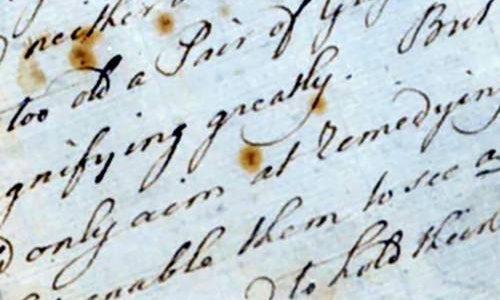 neither
too old a Pair of
gnifying greatly. But
only aim at remedying
enable them to see a
to hold their